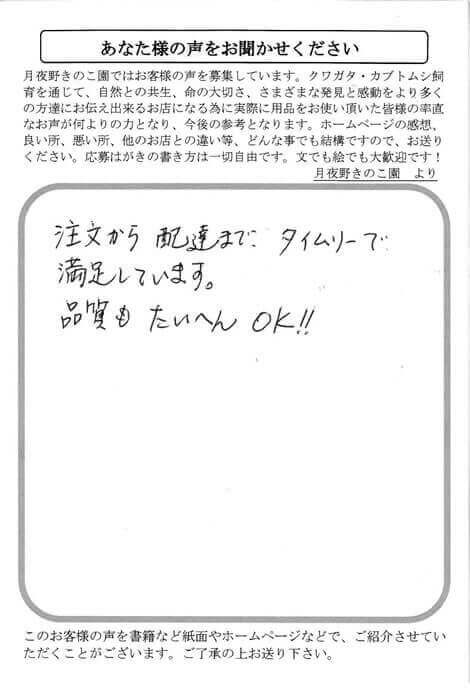 あなた様の声をお聞かせください
月夜野きのこ園ではお客様の声を募集しています。クワガタ・カブトムシ飼
育を通じて、自然との共生、命の大切さ、さまざまな発見と感動をより多く
の方達にお伝え出来るお店になる為に実際に用品をお使い頂いた皆様の率直
なお声が何よりの力となり、今後の参考となります。ホームページの感想、
良い所、悪い所、他のお店との違い等、どんな事でも結構ですので、お送り
ください。応募はがきの書き方は一切自由です。文でも絵でも大歓迎です！
月夜野きのこ園　より
注文から 配達まで タイムリーで
満足しています。
品質も たいへん OK!!
このお客様の声を書籍など紙面やホームページなどで、ご紹介させてい
ただくことがございます。ご了承の上お送り下さい。